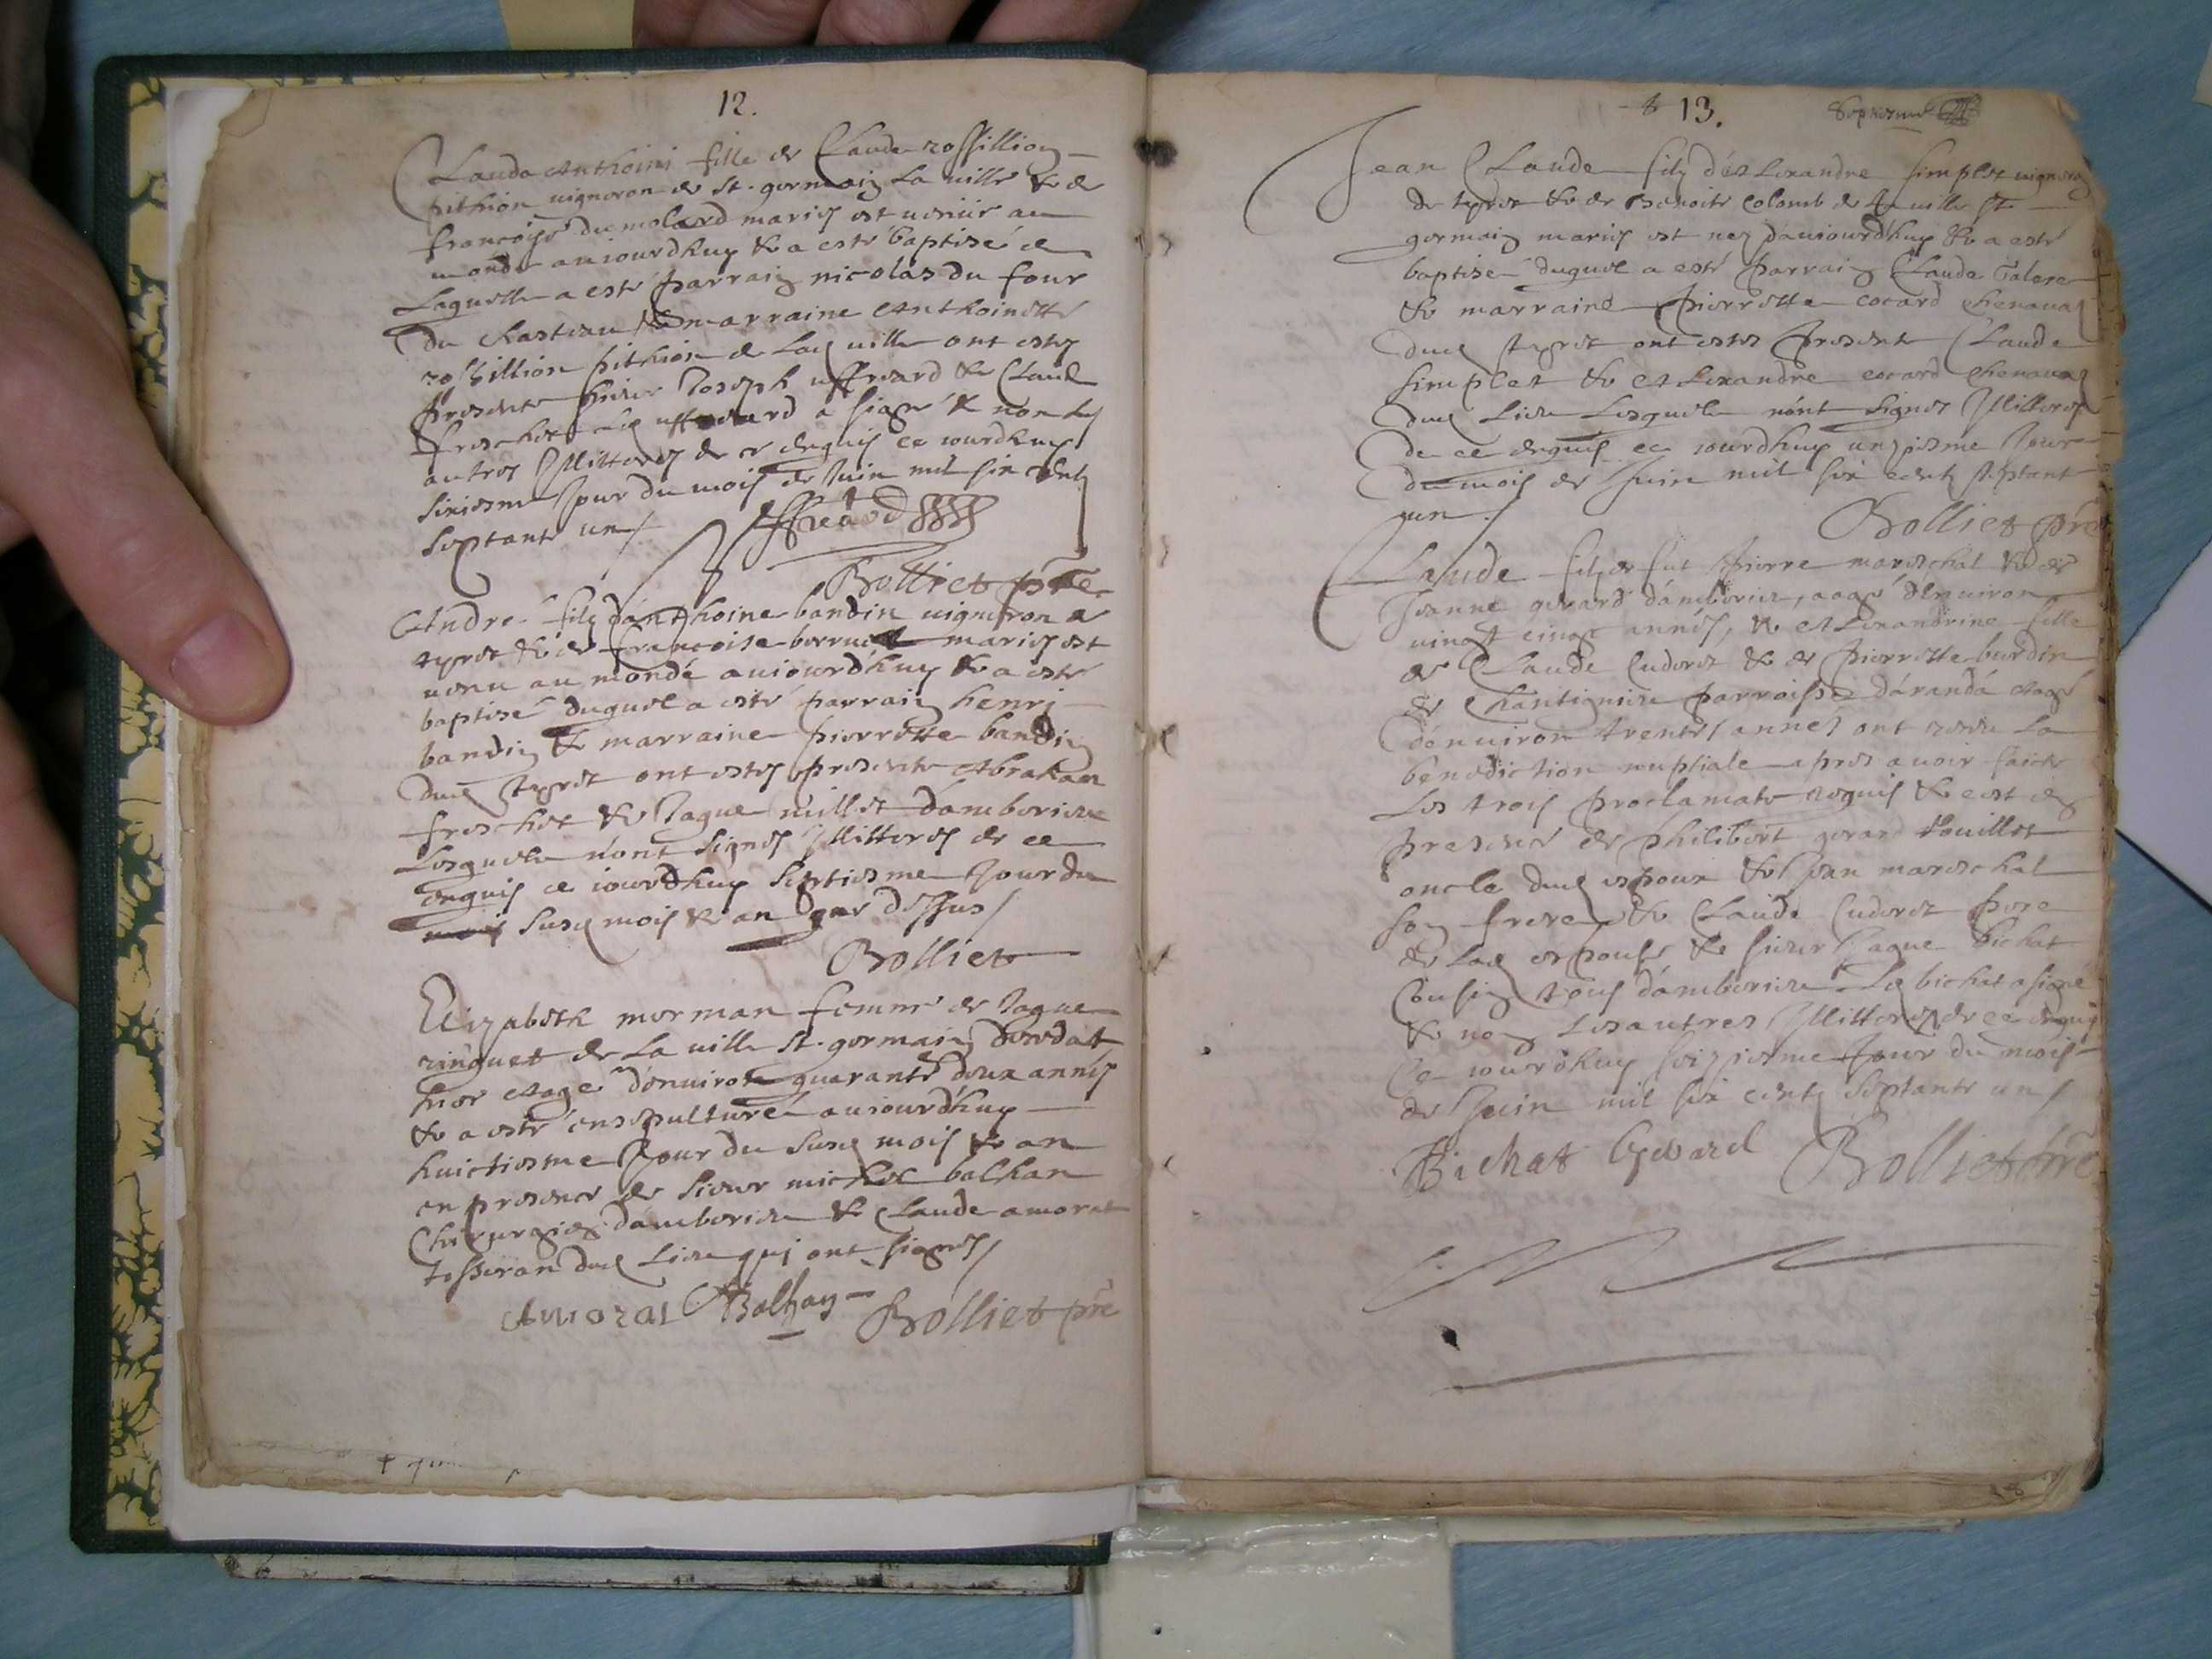 12.
Clauda Anthoini fille de Claude rossillion
pithion vigneron de St. germain la ville & de
francoise du molard mariés est venüe au
monde aujourdhuy & a esté baptisée de
Laquelle a esté parrain nicolas du four
du chasteau & marraine Anthoinette
rossillion pithion de lad ville ont estes
presents sieur Joseph uffreard & Claude
freschet led uffreard a signé & non les
autres Illitteres de ce enquis ce jourdhuy
sixiesme Jour du mois de Juin mil six cents
septante un /
uffreard
Bolliet pbre
André filz d'anthoine bandin vigneron a
tyret & de francoise berruet mariés est
venu au monde aujourd'huy & a esté
baptisé duquel a esté parrain henri
bandin & marraine pierrette bandin
dud tyret ont estes presents Abraham
freschet & Jaque millet d'amberieu
Lesquels n'ont signés Illitteres de ce
enquis ce jourdhuy septiesme Jour du
susd mois & an que dessus /
Bolliet
Elizabeth morman femme de Jaque
ringuet de la ville St. germain deceda
hier Aagé d'environ quarante deux annés
& a esté ensepulturé aujourd'huy
huictiesme Jour du susd mois & an
en presence de sieur michel balhan
Chirurgien damberieu & Claude amorat
tisseran dud Lieu qui ont signés /
Amorat Balhan Bolliet pbre
13.
Jean Claude filz d'Alexandre simplet vigneron
de tyret & de benoite Colomb de la ville St
germain mariés est nez d'aujourdhuy & a esté
baptisé duquel a esté parrain Claude
& marraine pierrette cocard chenaval
dud tyret ont estes presents Claude
simplet & Alexandre cocard chenaval
dud Lieu Lesquels n'ont signes Illitteres
de ce enquis ce jourdhuy unziesme Jour
du mois de Juin mil six cents septant
un /
Bolliet pbre
Claude filz de fut pierre mareschal & de
Jeanne gerard d'amberieu, aagé d'environ
vingt cinq annés, & Alexandrine fille
de Claude Cuderet & de pierrette burdin
de Chantigneu parroisse d'aranda Aagé
d'environ trente annes ont receu la
benediction nuptiale apres avoir faict
les trois proclamats requis & c'est en
presence de philibert gerard
oncle dud espoux & Jean mareschal
son frere & Claude Cuderet pere
de lad espouse & sieur Jaque bichat
Cousin tous d'amberieu Led bichat a signé
& non Les autres Illitteres de ce enquis
ce jourdhuy seiziesme Jour du mois
de Juin mil six cents septante un /
Bichat Gerard Bolliet pbre